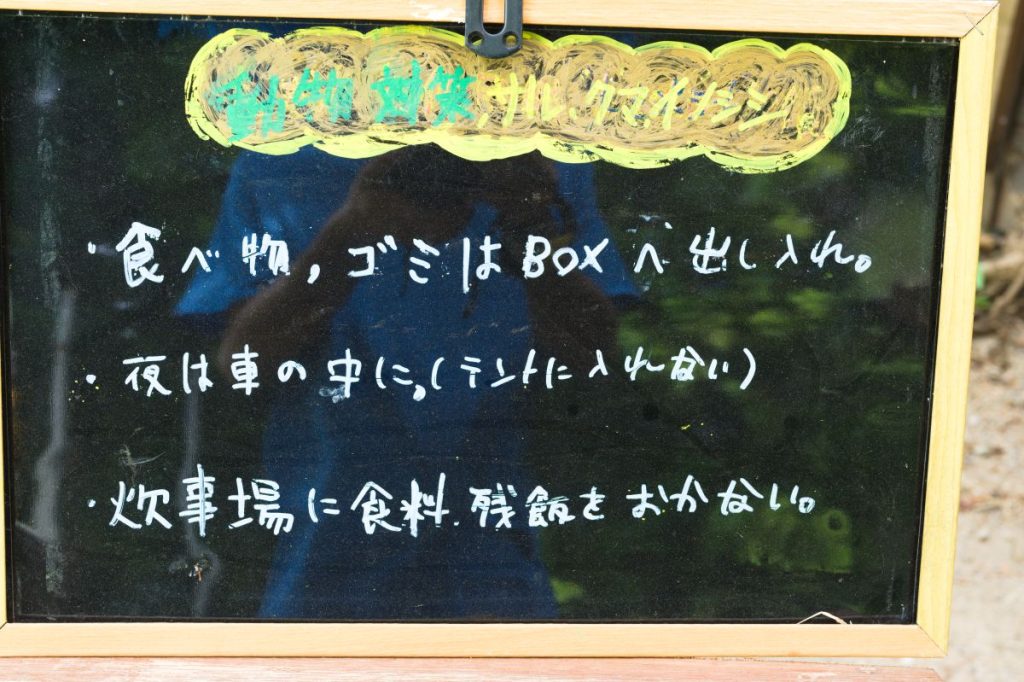 動物対策,サル、クマ、イノシシ
・食べ物,ゴミはBOXへ出し入れ。
・夜は車の中に。(テントに入れない)
・炊事場に食料.残飯をおかない。